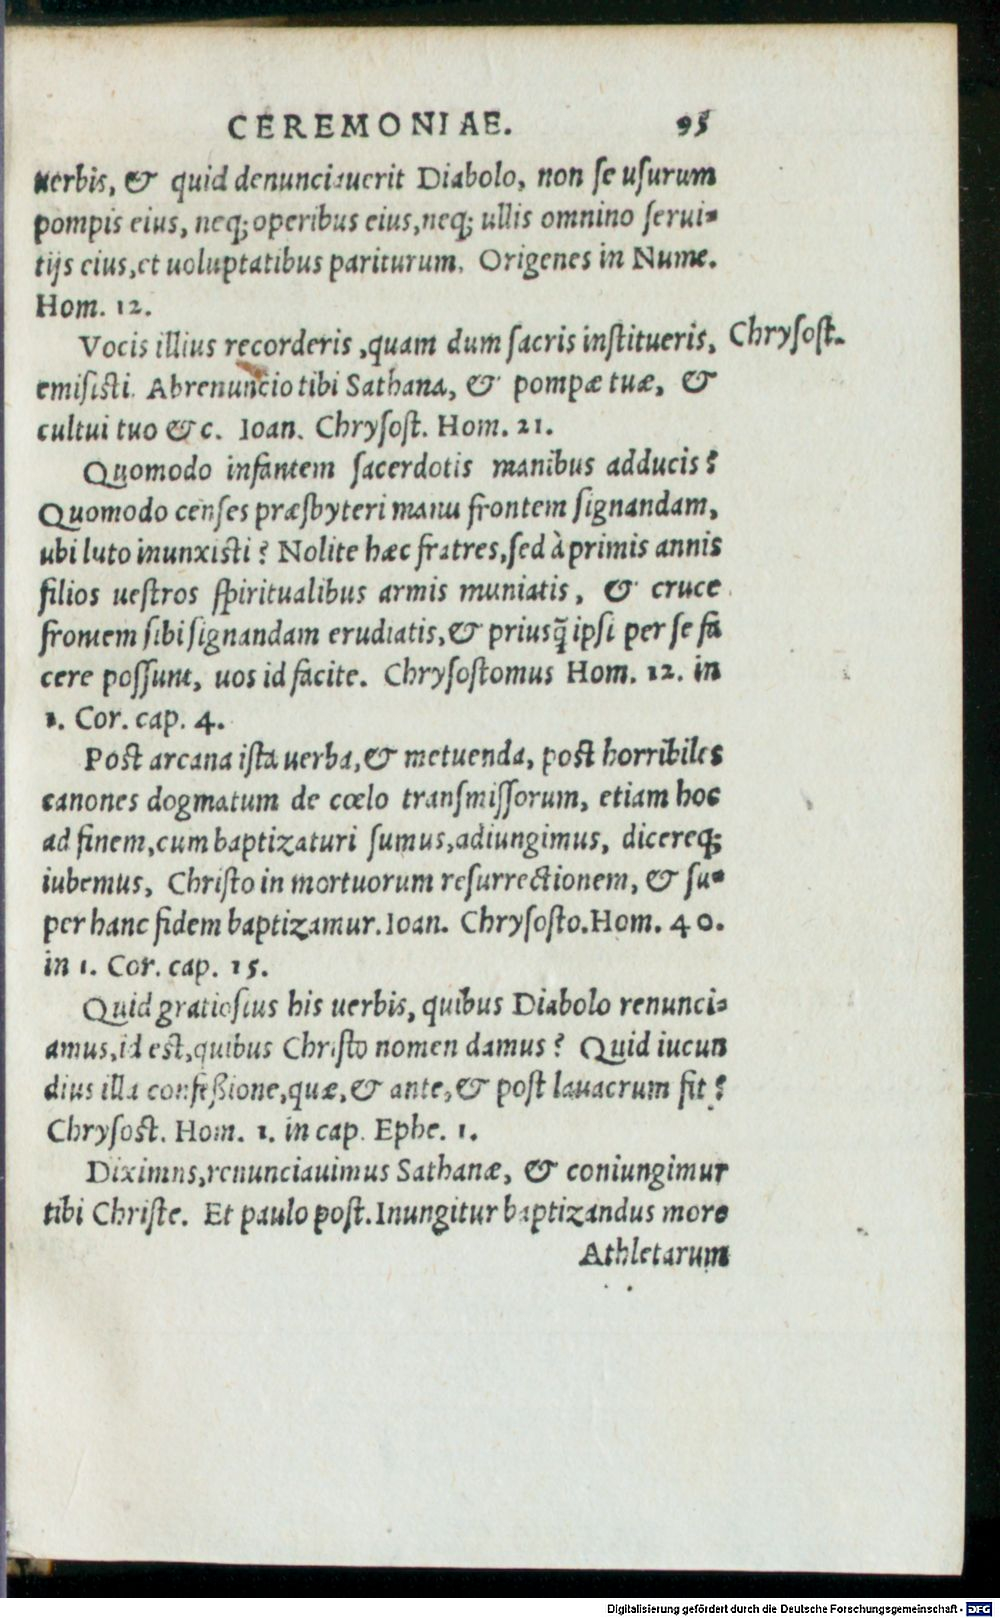 CEREMONIAE. 95
uerbis, & quid denunciauerit Diabolo, non se usurum
pompis eius, neq; operibus eius, neq; ullis omnino serui-
tijs eius, et uoluptatibus pariturum. Origenes in Nume.
Hom. 12.
Vocis illius recorderis, quam dum sacris institueris,
Chrysost.
emisisti. Abrenuncio tibi Sathana, & pompæ tuæ, &
cultui tuo &c. Ioan. Chrysost. Hom. 21.
Quomodo infantem sacerdotis manibus adducis?
Quomodo censes præsbyteri manu frontem signandam,
ubi luto inunxisti? Nolite hæc fratres, sed à primis annis
filios uestros spiritualibus armis muniatis, & cruce
frontem sibi signandam erudiatis, & priusq̃ ipsi per se fa
cere possunt, uos id facite. Chrysostomus Hom. 12. in
1. Cor. cap. 4.
Post arcana ista uerba, & metuenda, post horribiles
canones dogmatum de cœlo transmissorum, etiam hoc
ad finem, cum baptizaturi sumus, adiungimus, dicereq;
iubemus, Christo in mortuorum resurrectionem, & su-
per hanc fidem baptizamur. Ioan. Chrysosto. Hom. 40.
in 1. Cor. cap. 15.
Quid gratiosius his uerbis, quibus Diabolo renunci-
amus, id est, quibus Christo nomen damus? Quid iucun
dius illa confeßione, quæ, & ante, & post lauacrum fit?
Chrysost. Hom. 1. in cap. Ephe. 1.
Diximns, renunciauimus Sathanæ, & coniungimur
tibi Christe. Et paulo post. Inungitur baptizandus more
Athletarum
Digitalisierung gefördert durch die Deutsche Forschungsgemeinschaft - DFG